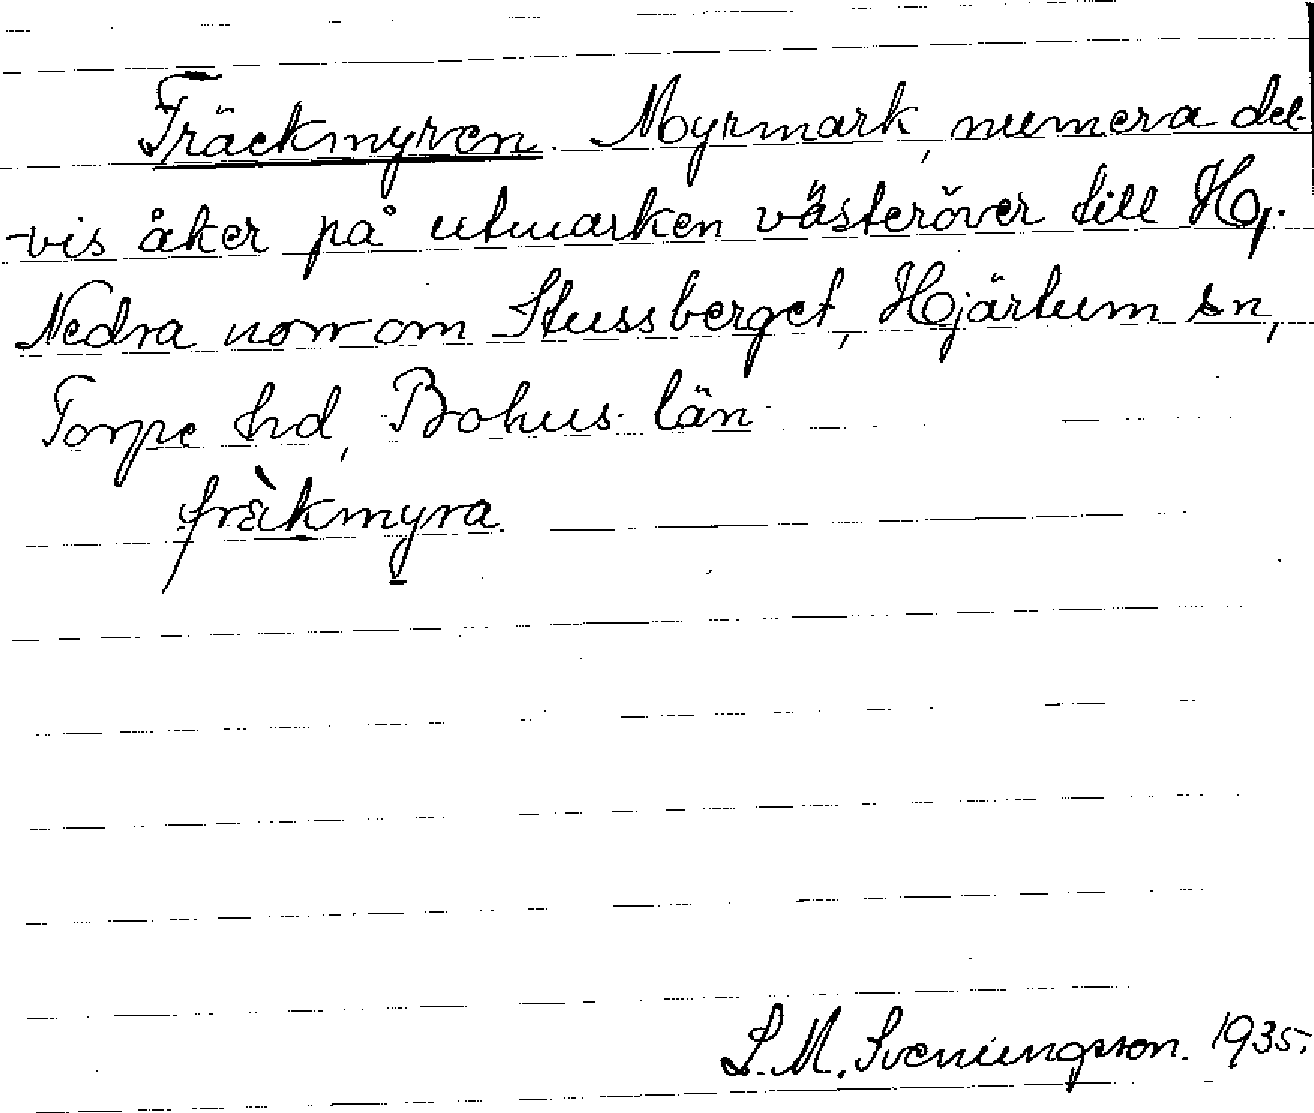 Träckmyren. Myrmark, numera del-
vis åker på utmarken västeröver till Hj.
Nedra norr om Stussberget, Hjärtum sn,
Torpe hd, Bohus län
träkmyra
S. M. Svenungsson. 1935.